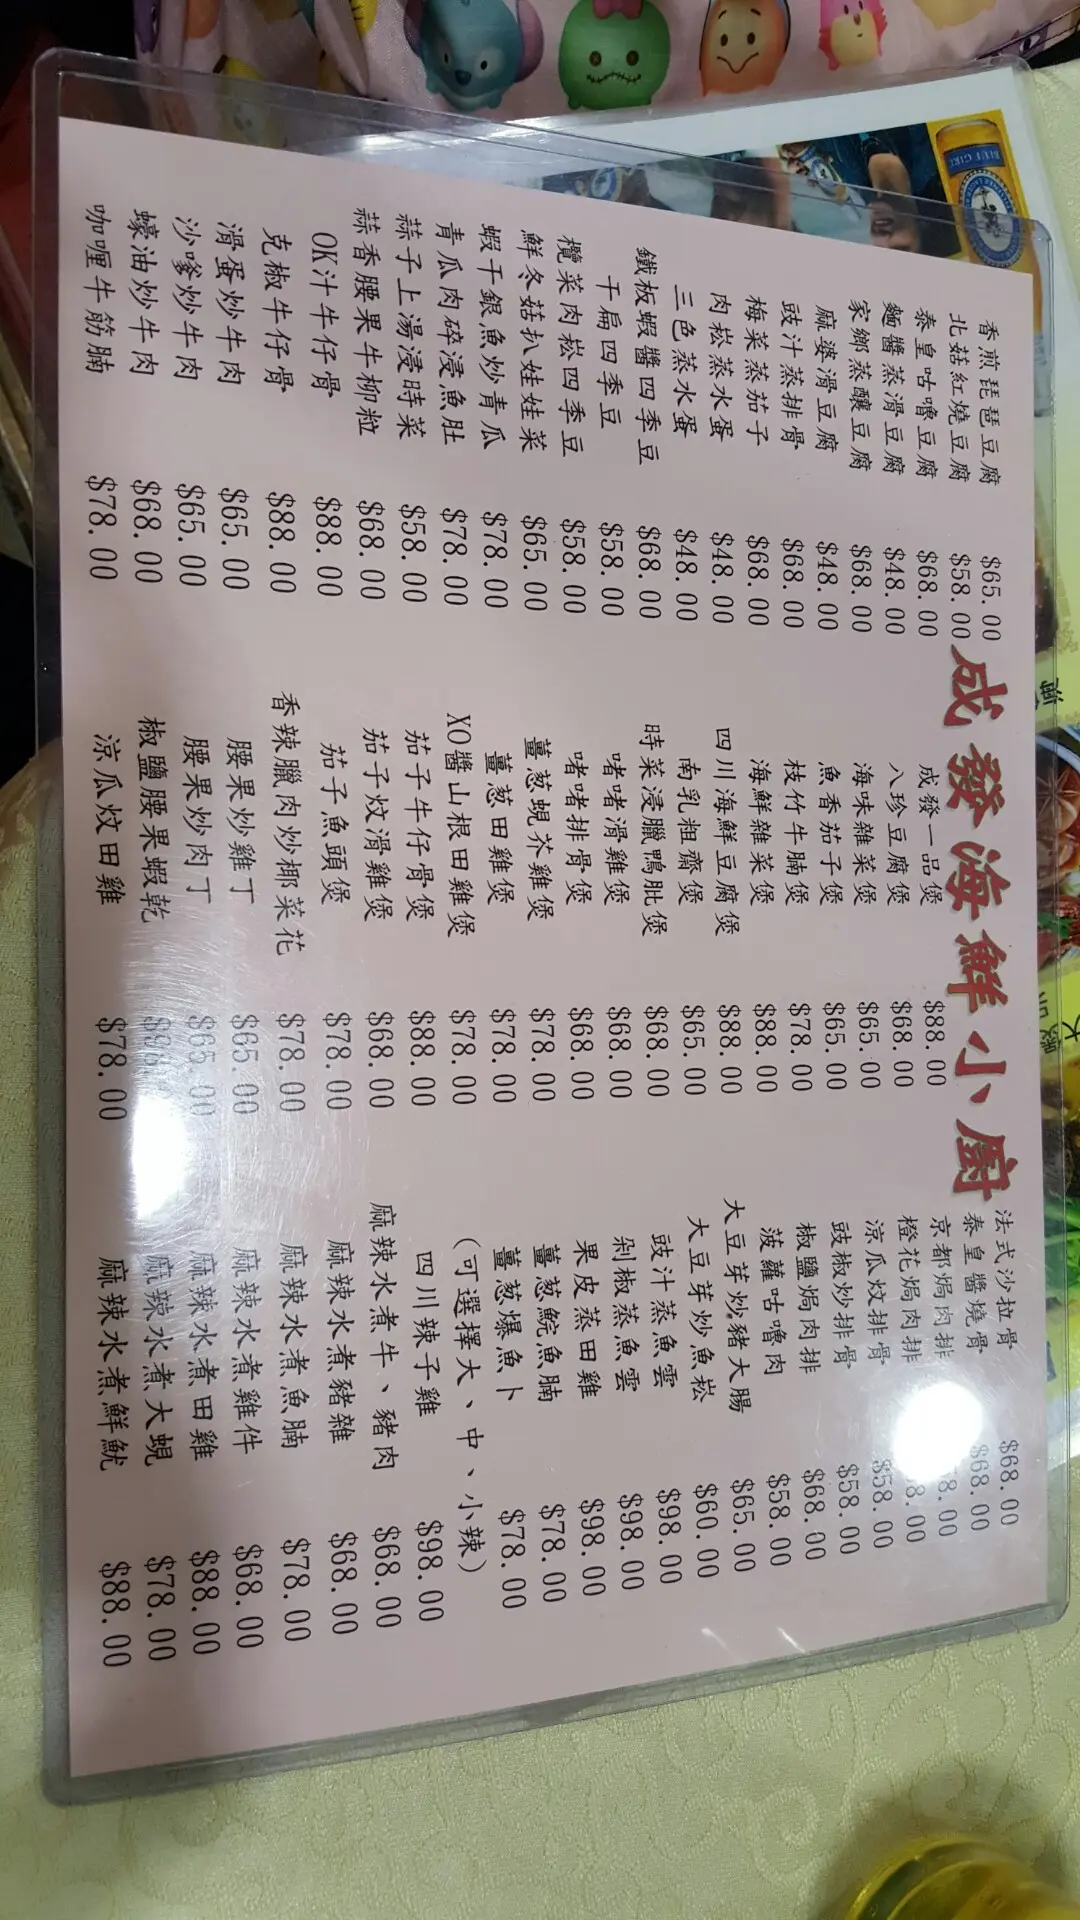 成發海鮮小廚
香煎琵琶豆腐 $65.00
北菇紅燒豆腐 $58.00
泰皇咕嚕豆腐 $68.00
麵醬蒸滑豆腐 $48.00
家鄉蒸釀豆腐 $68.00
麻婆滑豆腐 $48.00
豉汁蒸排骨 $68.00
梅菜蒸茄子 $68.00
肉崧蒸水蛋 $48.00
三色蒸水蛋 $48.00
鐵板蝦醬四季豆 $68.00
干扁四季豆 $58.00
欖菜肉崧四季豆 $58.00
鮮冬菇扒娃娃菜 $65.00
蝦干銀魚炒青瓜 $78.00
青瓜肉碎浸魚肚 $78.00
蒜子上湯浸時菜 $58.00
蒜香腰果牛柳粒 $68.00
OK汁牛仔骨 $88.00
克椒牛仔骨 $88.00
滑蛋炒牛肉 $65.00
沙嗲炒牛肉 $65.00
蠔油炒牛肉 $68.00
咖喱牛筋腩 $78.00
成發一品煲 $88.00
八珍豆腐煲 $68.00
海味雜菜煲 $65.00
魚香茄子煲 $65.00
枝竹牛腩煲 $78.00
海鮮雜菜煲 $88.00
四川海鮮豆腐煲 $88.00
南乳粗齋煲 $65.00
時菜浸臘鴨肶煲 $68.00
啫啫滑雞煲 $68.00
啫啫排骨煲 $68.00
薑葱蜆芥雞煲 $78.00
薑葱田雞煲 $78.00
XO醬山根田雞煲 $78.00
茄子牛仔骨煲 $88.00
茄子炆滑雞煲 $68.00
茄子魚頭煲 $78.00
香辣臘肉炒椰菜花 $78.00
腰果炒雞丁 $65.00
腰果炒肉丁 $65.00
椒鹽腰果蝦乾
涼瓜炆田雞 $78.00
法式沙拉骨 $68.00
泰皇醬燒骨 $68.00
京都焗肉排
橙花焗肉排
涼瓜炆排骨 $58.00
豉椒炒排骨 $58.00
椒鹽焗肉排 $68.00
菠蘿咕嚕肉 $58.00
大豆芽炒豬大腸 $65.00
大豆芽炒魚崧 $60.00
豉汁蒸魚雲 $98.00
剁椒蒸魚雲 $98.00
果皮蒸田雞 $98.00
薑葱鯇魚腩 $78.00
薑葱爆魚卜 $78.00
(可選擇大、中、小辣)
四川辣子雞 $98.00
麻辣水煮牛、豬肉 $68.00
麻辣水煮豬雜 $68.00
麻辣水煮魚腩 $78.00
麻辣水煮雞件 $68.00
麻辣水煮田雞 $88.00
麻辣水煮大蜆 $78.00
麻辣水煮鮮魷 $88.00
BLUE GIRL